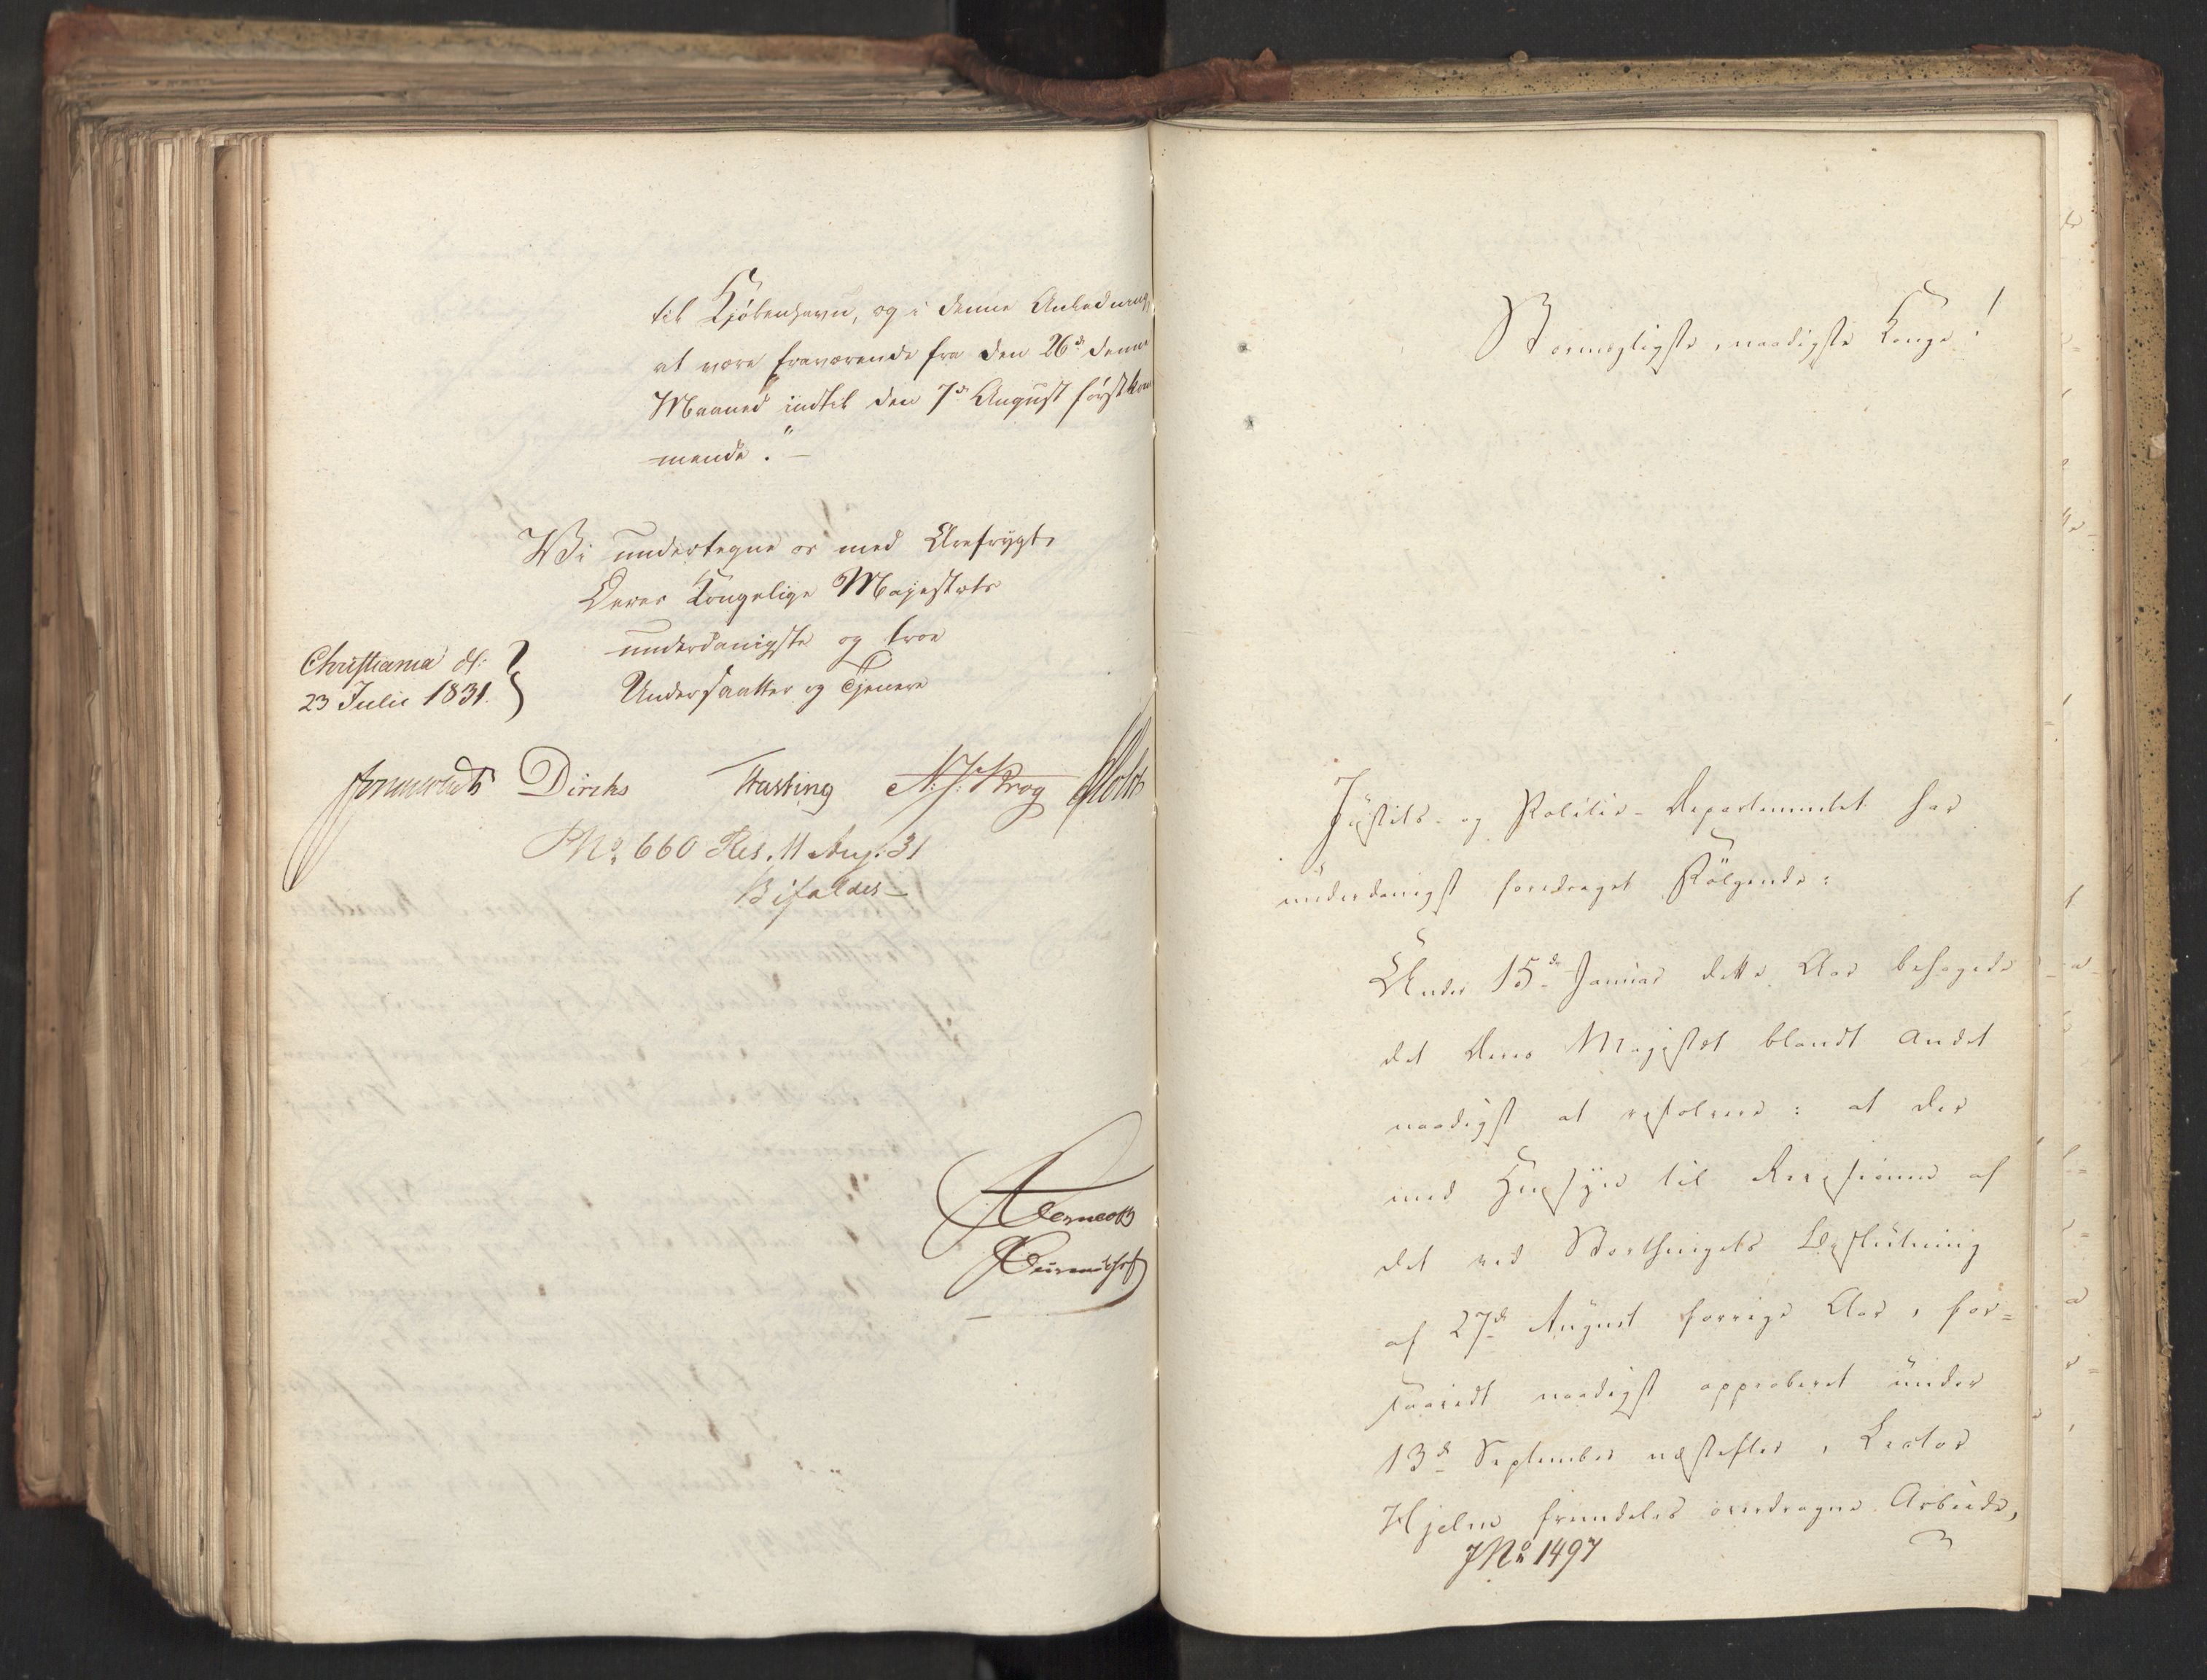 til Kjöbenhavn, og i denne Anledning
at være fraværende fra den 26de denne
Maaned indtil den 7de August förstkom
mende." —
Vi undertegne os med Ærefrygt,
Deres Kongelige Majestæts
underdanigste og troe
Undersaatter og Tjenere
Christiania d:
23 Julii 1831.
Sommerhielm Diriks Fasting N. J. Krog Holst
JNo 660 Res. 11 Aug. 31
Bifaldes —
Stormægtigste, naadigste Konge!
Justits- og Politie-Departementet har
underdanigst foredraget Fölgende:
Under 15de Januar dette Aar behagede
det Deres Majestæt blandt Andet
naadigst at resolvere: at der
med Hensyn til Revisionen af
det ved Storthingets Beslutning
af 27de August forrige Aar, for=
saavidt naadigst approberet under
13de September næstefter, Lector
Hjelm fremdeles overdragne Arbeide,
JNo 1497